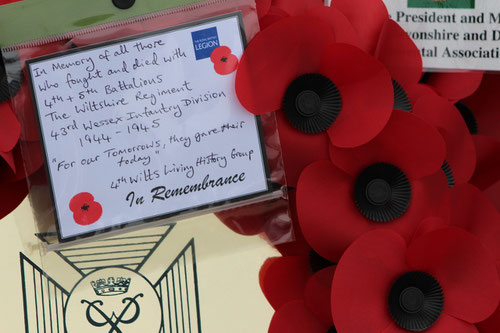 In Memory of all those
who fought and died with
4th + 5th Battalions
The Wiltshire Regiment
43rd Wessex Infantry Division
1944 - 1945
"For our Tomorrows, they gave their
today",
4th Wilts Living History Group
In Remembrance
LEGION
President and M
vonshire and D
tal Associati